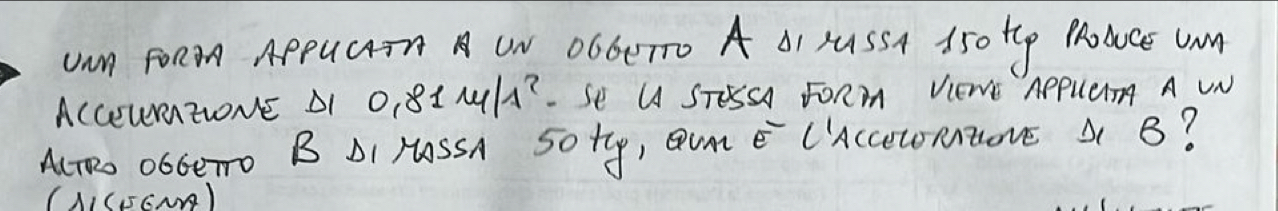 UNA FORZA APPLICATA A UN OGGETTO A DI MASSA 150 Kg PRODUCE UNA
ACCELERAZIONE DI 0,81 m/s². SE LA STESSA FORZA VIENE APPLICATA A UN
ALTRO OGGETTO B DI MASSA 50 Kg, QUAL È L'ACCELERAZIONE DI B?
(DISEGNA)